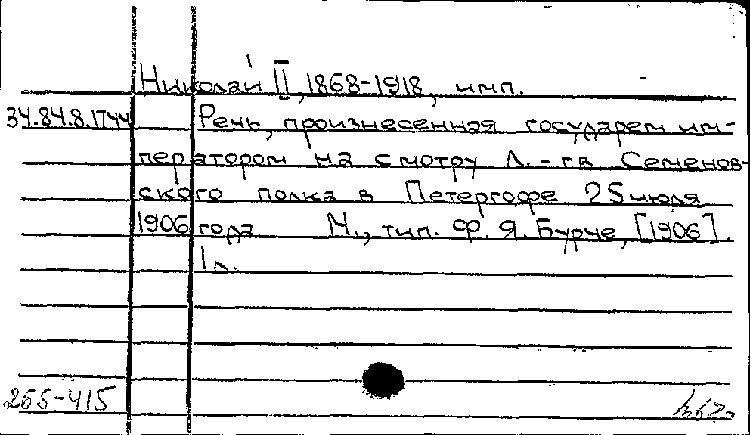 Николай II, 1868-1918, имп.
34.84.8.1744 Речь, произнесенная государем им-
ператором на смотру Л.-гв. Семенов-
ского полка в Петергофе 25 июля
1906 года М., тип. Ф. Я. Бурче, [1906].
1 л.
266-415